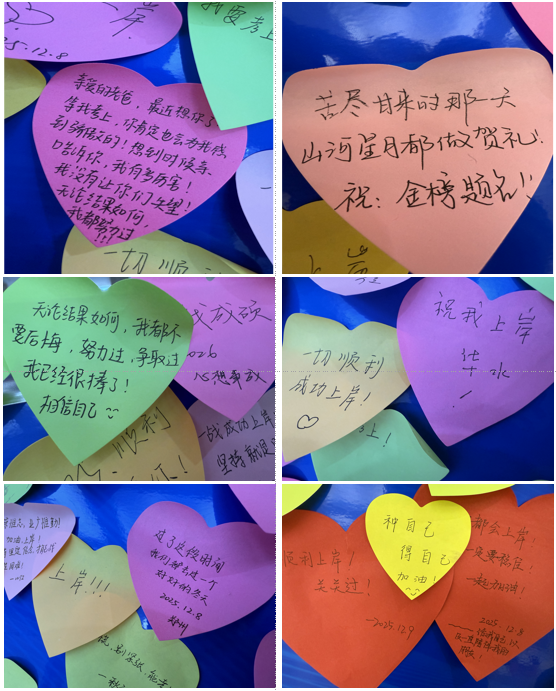 岸!
2025.12.8
我要考上
亲爱的爸爸,最近想你了
等我考上,你肯定也会为我感
到骄傲的!想到时候亲口
告诉你,我有多厉害!
我没有让你们失望!
无论结果如何,
我都努力过
!!!
一切顺利
苦尽甘来的那一天
山河星月都做贺礼.
祝:金榜题名!
上岸
无论结果如何,我都不
要后悔,努力过,争取过
我已经很棒了!
相信自己
成硕
2026
心想事成
顺利
一战成功上岸
坚持就是
祝我上岸
一切顺利
成功上岸!
上!
加油上岸!
上岸!!!
过了这段时间
我们都去过一个
好好的冬天
2025.12.8
顺利上岸!
关关过!
—2025.12.9
种自己
得自己
加油!
都会上岸!
一定要稳住!
一起加油!
2025.12.8